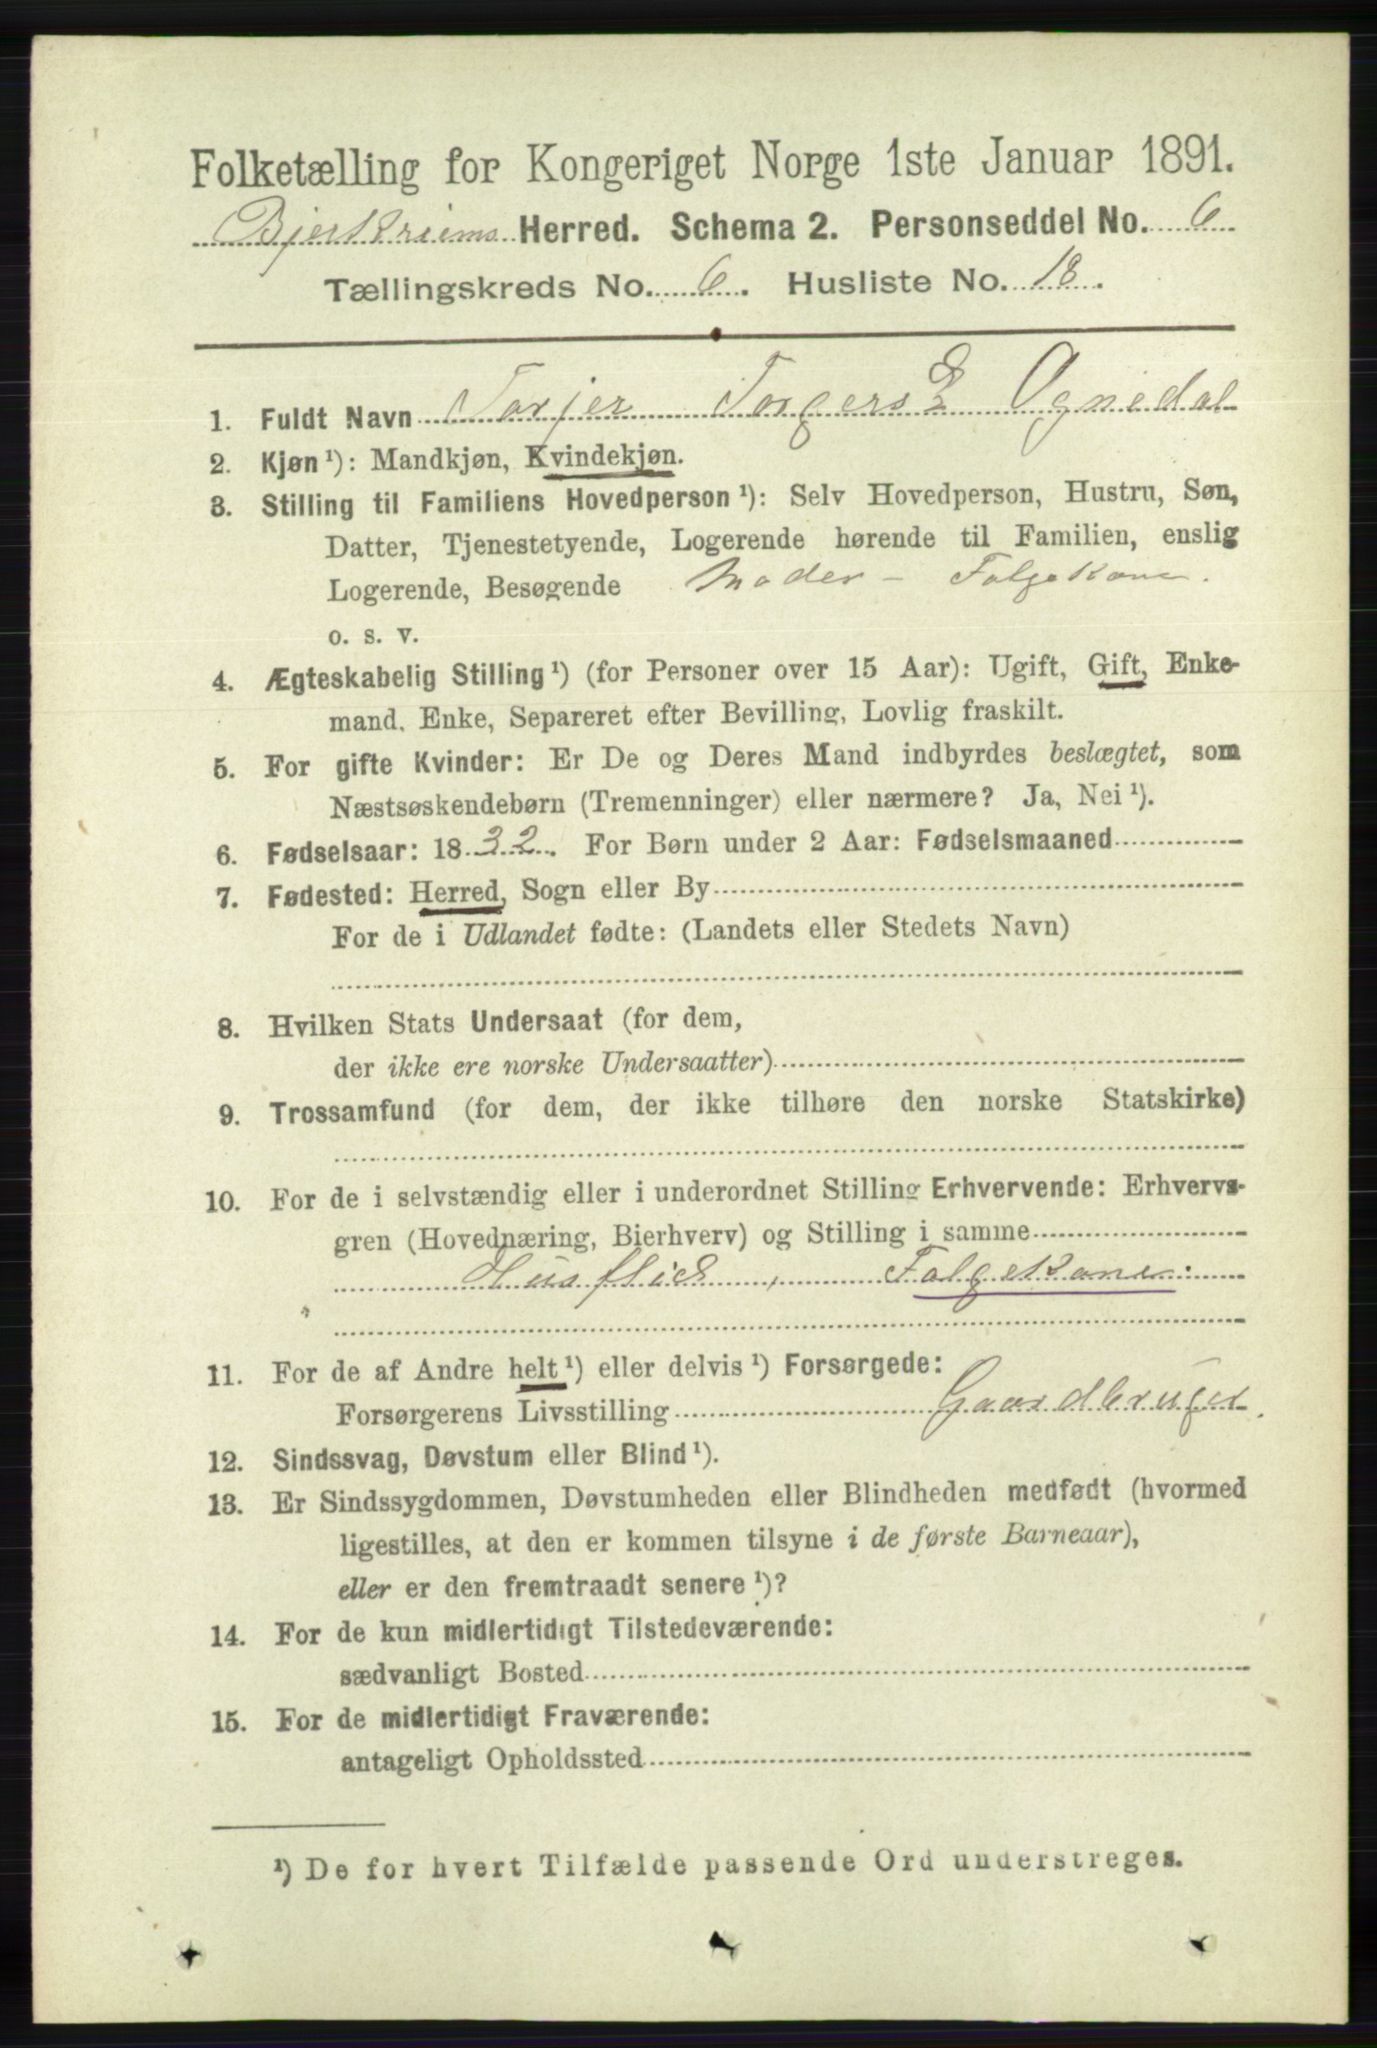 Folketælling for Kongeriget Norge 1ste Januar 1891.
Bjerkreims Herred. Schema 2. Personseddel No. 6
Tællingskreds No. 6. Husliste No. 18.
1. Fuldt Navn Torjer Torgers D Ognedal
2. Kjøn ¹): Mandkjøn, Kvindekjøn.
3. Stilling til Familiens Hovedperson ¹): Selv Hovedperson, Hustru, Søn,
Datter, Tjenestetyende, Logerende hørende til Familien, enslig
Logerende, Besøgende Moder - Folgekone.
o. s. v.
4. Ægteskabelig Stilling ¹) (for Personer over 15 Aar): Ugift, Gift, Enke-
mand, Enke, Separeret efter Bevilling, Lovlig fraskilt.
5. For gifte Kvinder: Er De og Deres Mand indbyrdes beslægtet, som
Næstsøskendebørn (Tremenninger) eller nærmere? Ja, Nei ¹).
6. Fødselsaar: 1832. For Børn under 2 Aar: Fødselsmaaned
7. Fødested: Herred, Sogn eller By
For de i Udlandet fødte: (Landets eller Stedets Navn)
8. Hvilken Stats Undersaat (for dem,
der ikke ere norske Undersaatter)
9. Trossamfund (for dem, der ikke tilhøre den norske Statskirke)
10. For de i selvstændig eller i underordnet Stilling Erhvervende: Erhvervs-
gren (Hovednæring, Bierhverv) og Stilling i samme
Husflid, Folgekone.
11. For de af Andre helt ¹) eller delvis ¹) Forsørgede:
Forsørgerens Livsstilling Gaardbruger.
12. Sindssvag, Døvstum eller Blind ¹).
13. Er Sindssygdommen, Døvstumheden eller Blindheden medfødt (hvormed
ligestilles, at den er kommen tilsyne i de første Barneaar),
eller er den fremtraadt senere ¹)?
14. For de kun midlertidigt Tilstedeværende:
sædvanligt Bosted
15. For de midlertidigt Fraværende:
antageligt Opholdssted
¹) De for hvert Tilfælde passende Ord understreges.